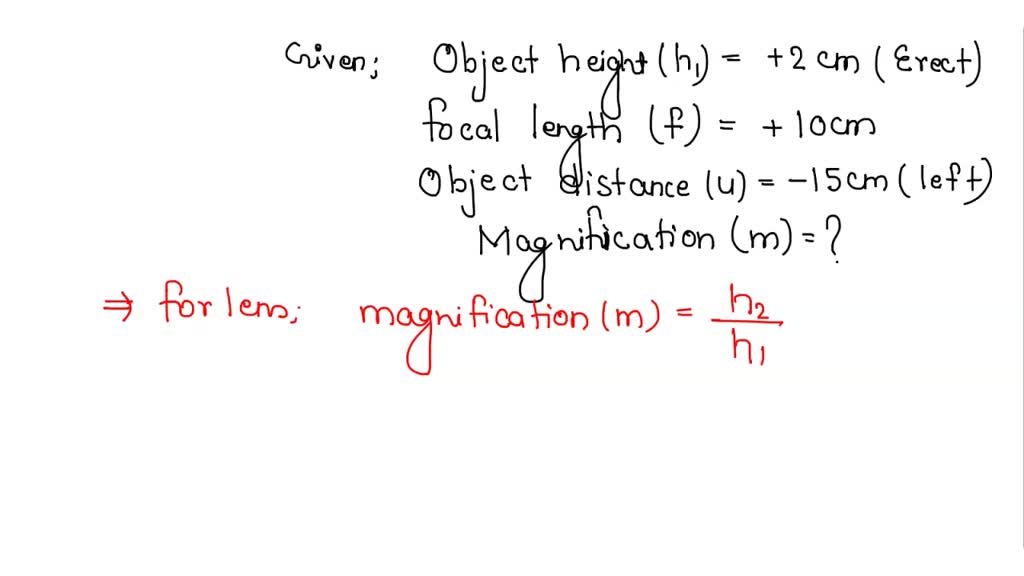 Given; Object height (h₁) = +2 cm (Erect)
focal length (f) = + 10cm
Object distance (u) = -15cm (left)
Magnification (m) = ?
⇒ for lens; magnification (m) = h₂/h₁